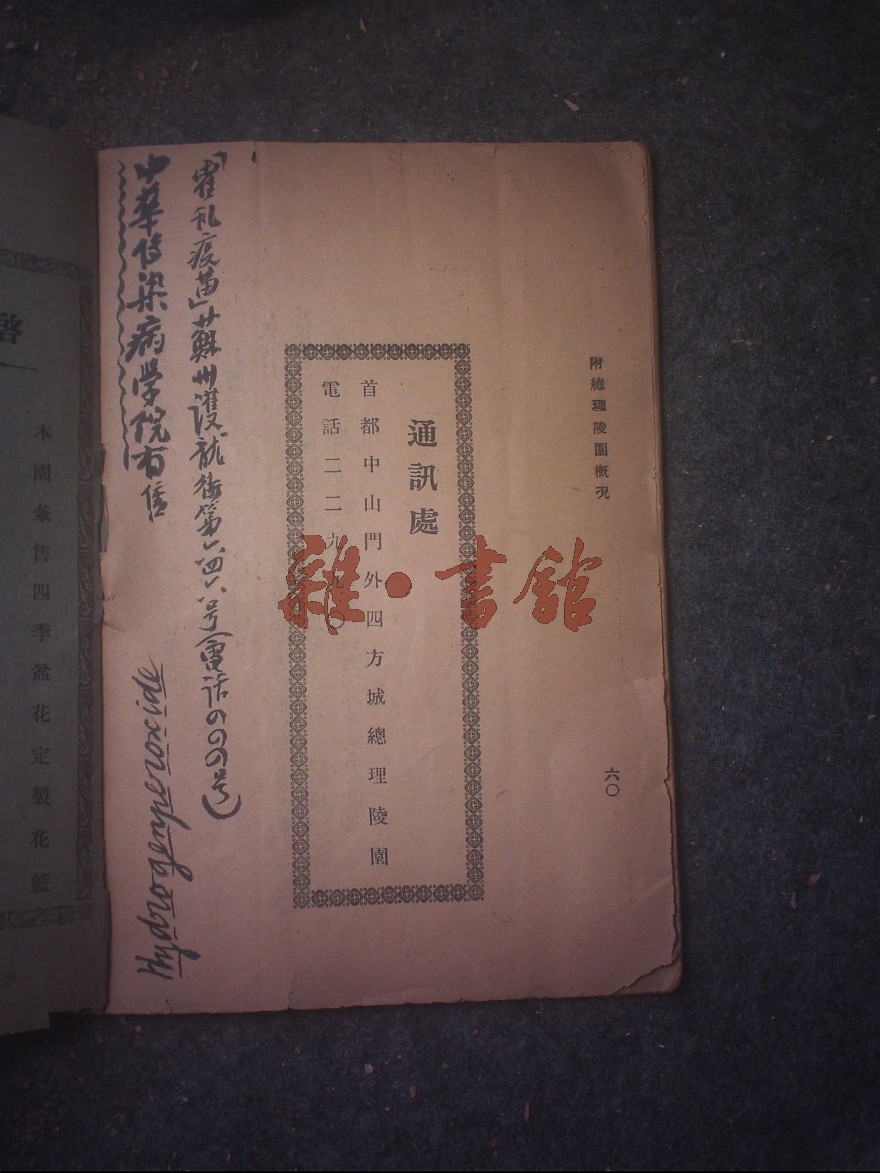 附總理陵園概況
六〇
通訊處
首都中山門外四方城總理陵園
電話二二九九〇
雜·書館
「霍乱疫苗」蘇州護龍街第六四六号(電話999号)
中華傳染病学院有售
Hydrogenphyoroxide
啓
本園兼售四季盆花定製花籃